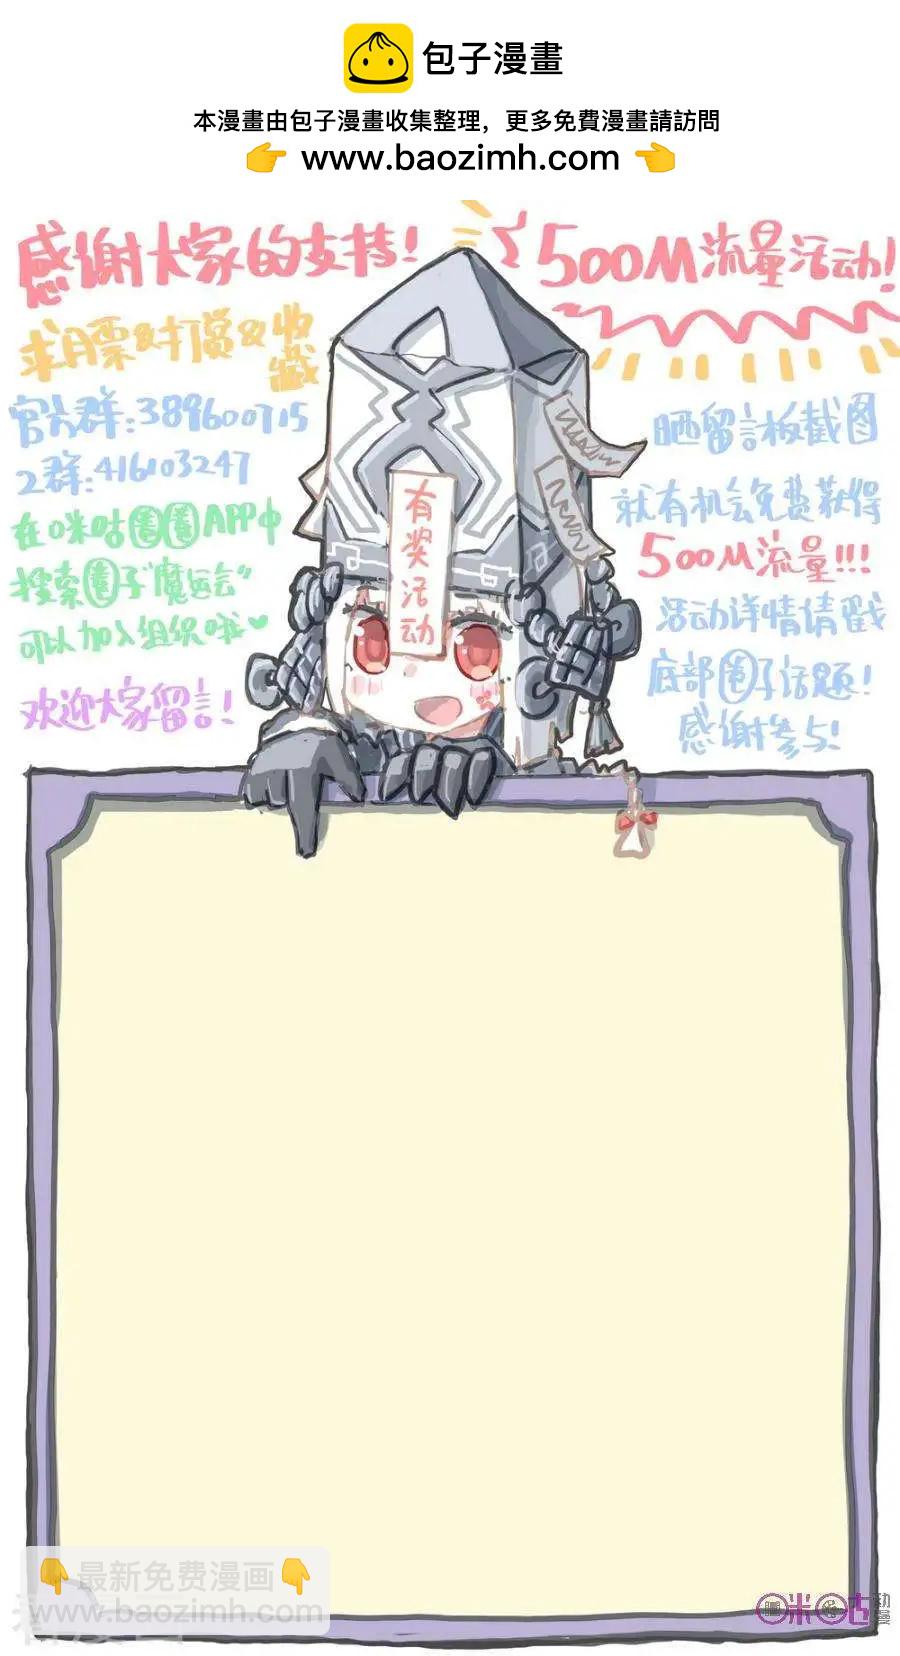 包子漫畫
本漫畫由包子漫畫收集整理，更多免費漫畫請訪問
👉 www.baozimh.com 👈
感谢大家的支持!
求月票&打赏&收藏
官方群:389600715
2群:416103247
在咪咕圈圈APP中
搜索圈子"魔运会"
可以加入组织哦♥
欢迎大家留言!
500M流量活动!
晒留言板截图
就有机会免费获得
500M流量!!!
活动详情请戳
底部圈子话题!
感谢参与!
有奖活动
👇最新免费漫画👇
www.baozimh.com
咪咕动漫